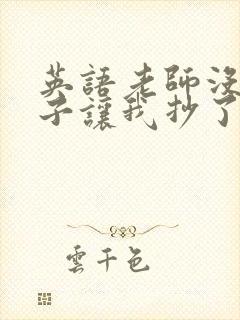 英語老師沒
子讓我抄了
雲千色